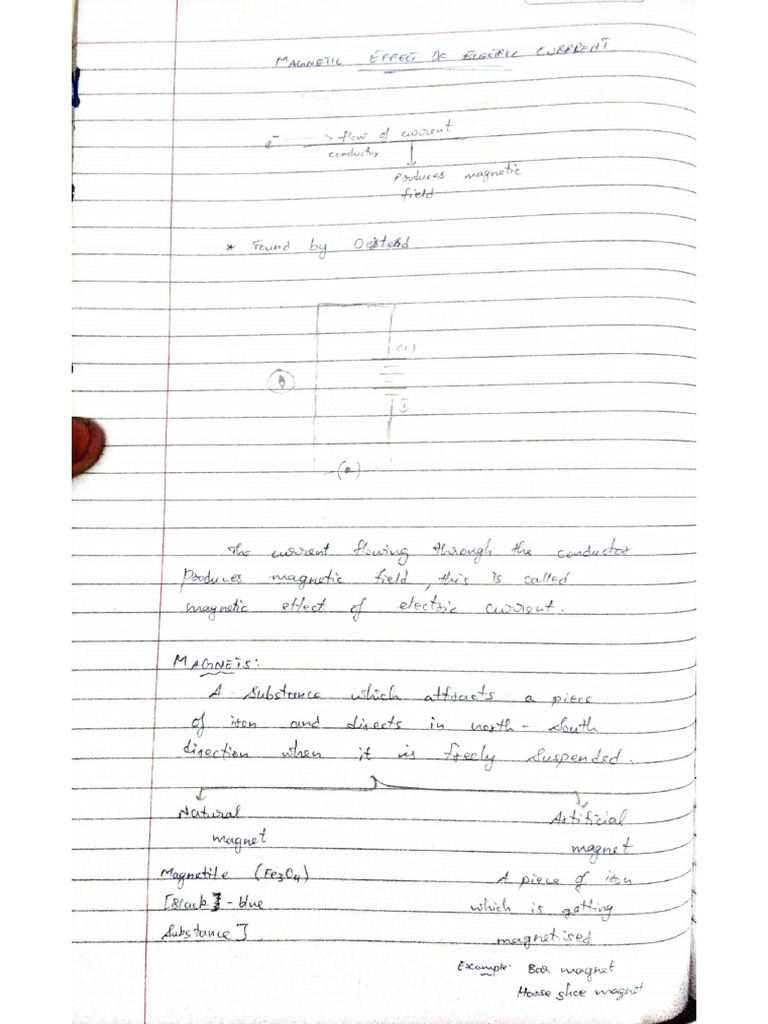 MAGNETIC EFFECT OF ELECTRIC CURRENT
e⁻ → flow of current
conductor
↓
Produces magnetic
field
* Found by Oersted
(1)
I
(a)
The current flowing through the conductor
Produces magnetic field, this is called
magnetic effect of electric current.
MAGNETS:
A Substance which attracts a piece
of iron and directs in north - South
direction when it is freely Suspended.
Natural
magnet
Magnetite (Fe₃O₄)
[Black - blue
Substance]
Artificial
magnet
A piece of iron
which is getting
magnetised
Example: Bar magnet
Horse shoe magnet